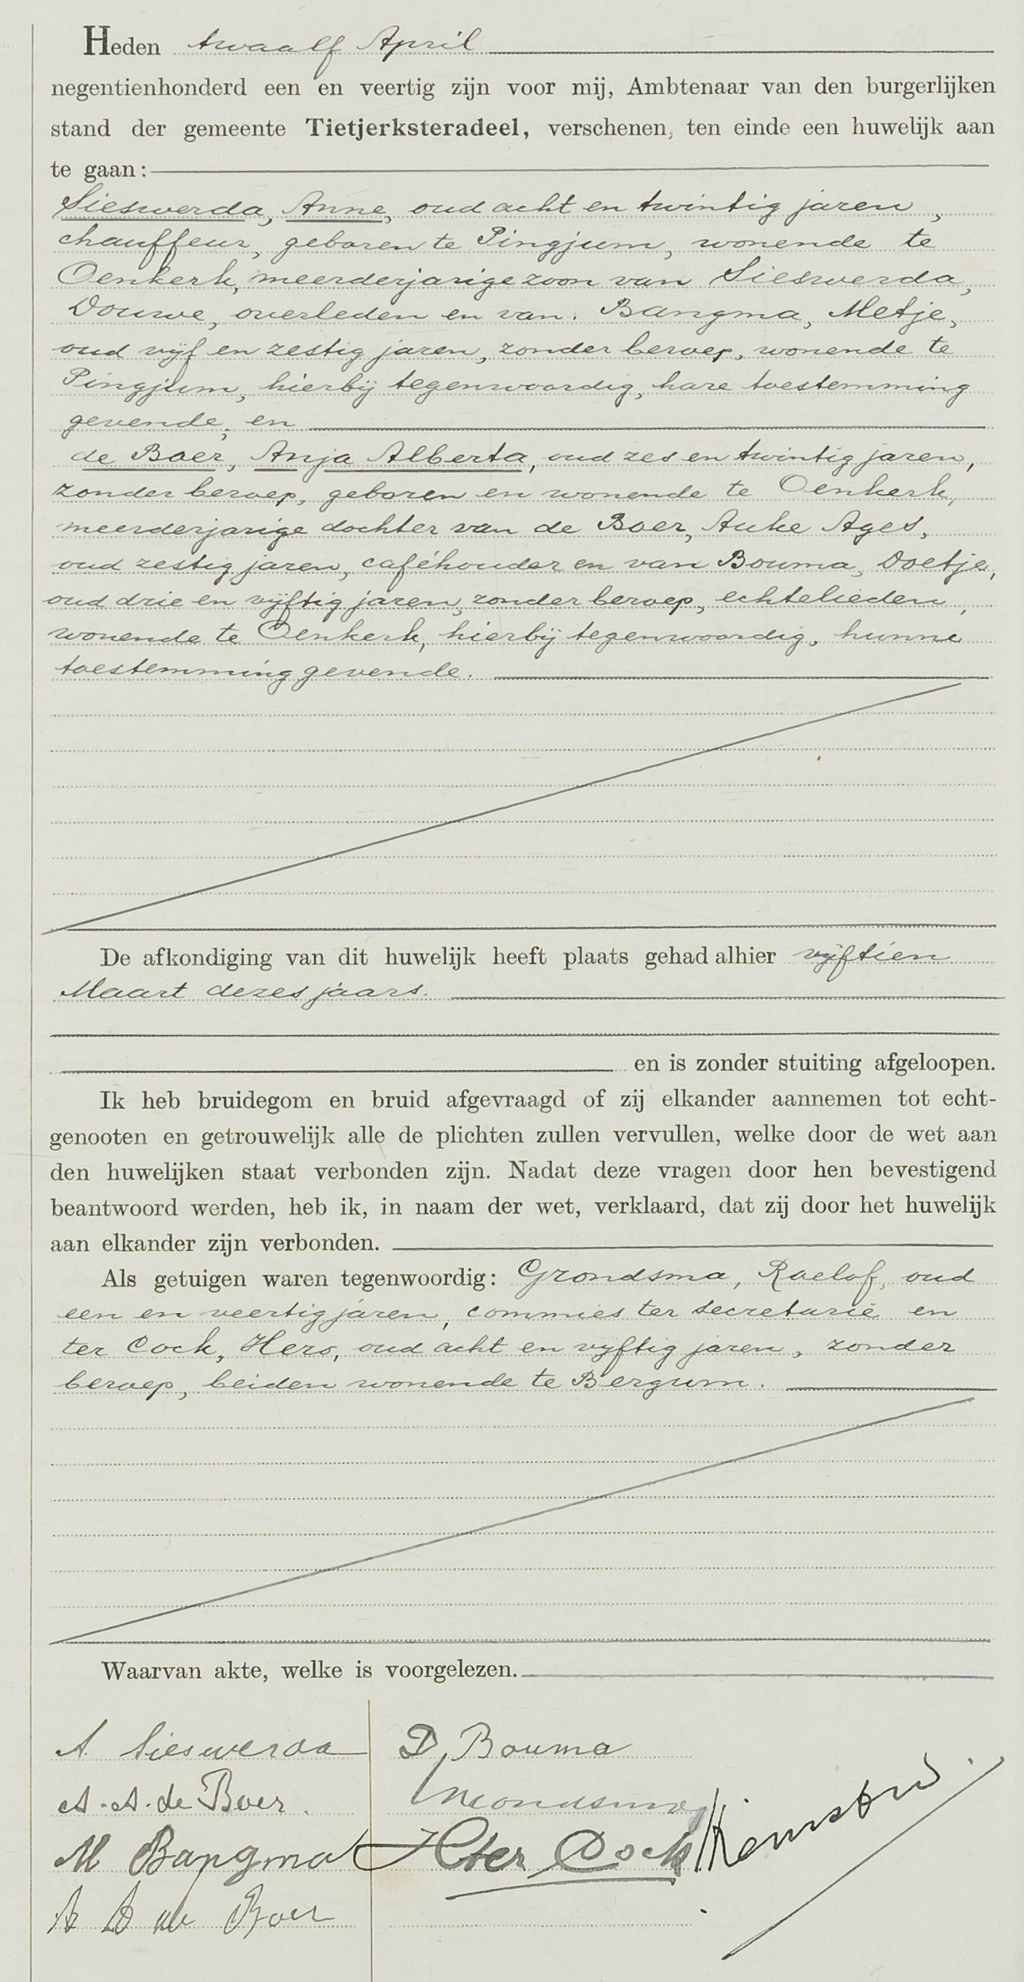 Heden twaalf April
negentienhonderd een en veertig zijn voor mij, Ambtenaar van den burgerlijken
stand der gemeente Tietjerksteradeel, verschenen, ten einde een huwelijk aan
te gaan:
Sieswerda, Anne, oud acht en twintig jaren,
chauffeur, geboren te Pingjum, wonende te
Oenkerk, meerderjarige zoon van Sieswerda,
Douwe, overleden en van. Bangma, Metje,
oud vijf en zestig jaren, zonder beroep, wonende te
Pingjum, hierbij tegenwoordig, hare toestemming
gevende; en
de Boer, Anja Alberta, oud zes en twintig jaren,
zonder beroep, geboren en wonende te Oenkerk,
meerderjarige dochter van de Boer, Auke Ages,
oud zestig jaren, caféhouder en van Bouma, Doetje,
oud drie en vijftig jaren, zonder beroep, echtelieden,
wonende te Oenkerk, hierbij tegenwoordig, hunne
toestemming gevende.
De afkondiging van dit huwelijk heeft plaats gehad alhier vijftien
Maart dezes jaars.
en is zonder stuiting afgeloopen.
Ik heb bruidegom en bruid afgevraagd of zij elkander aannemen tot echt-
genooten en getrouwelijk alle de plichten zullen vervullen, welke door de wet aan
den huwelijken staat verbonden zijn. Nadat deze vragen door hen bevestigend
beantwoord werden, heb ik, in naam der wet, verklaard, dat zij door het huwelijk
aan elkander zijn verbonden.
Als getuigen waren tegenwoordig: Grondsma, Roelof, oud
een en veertig jaren, commies ter secretarie en
ter Cock, Hero, oud acht en vijftig jaren, zonder
beroep, beiden wonende te Bergum.
Waarvan akte, welke is voorgelezen.
A. Sieswerda
D. Bouma
A. A. de Boer.
M Bangma
H ter Cock
A A de Boer